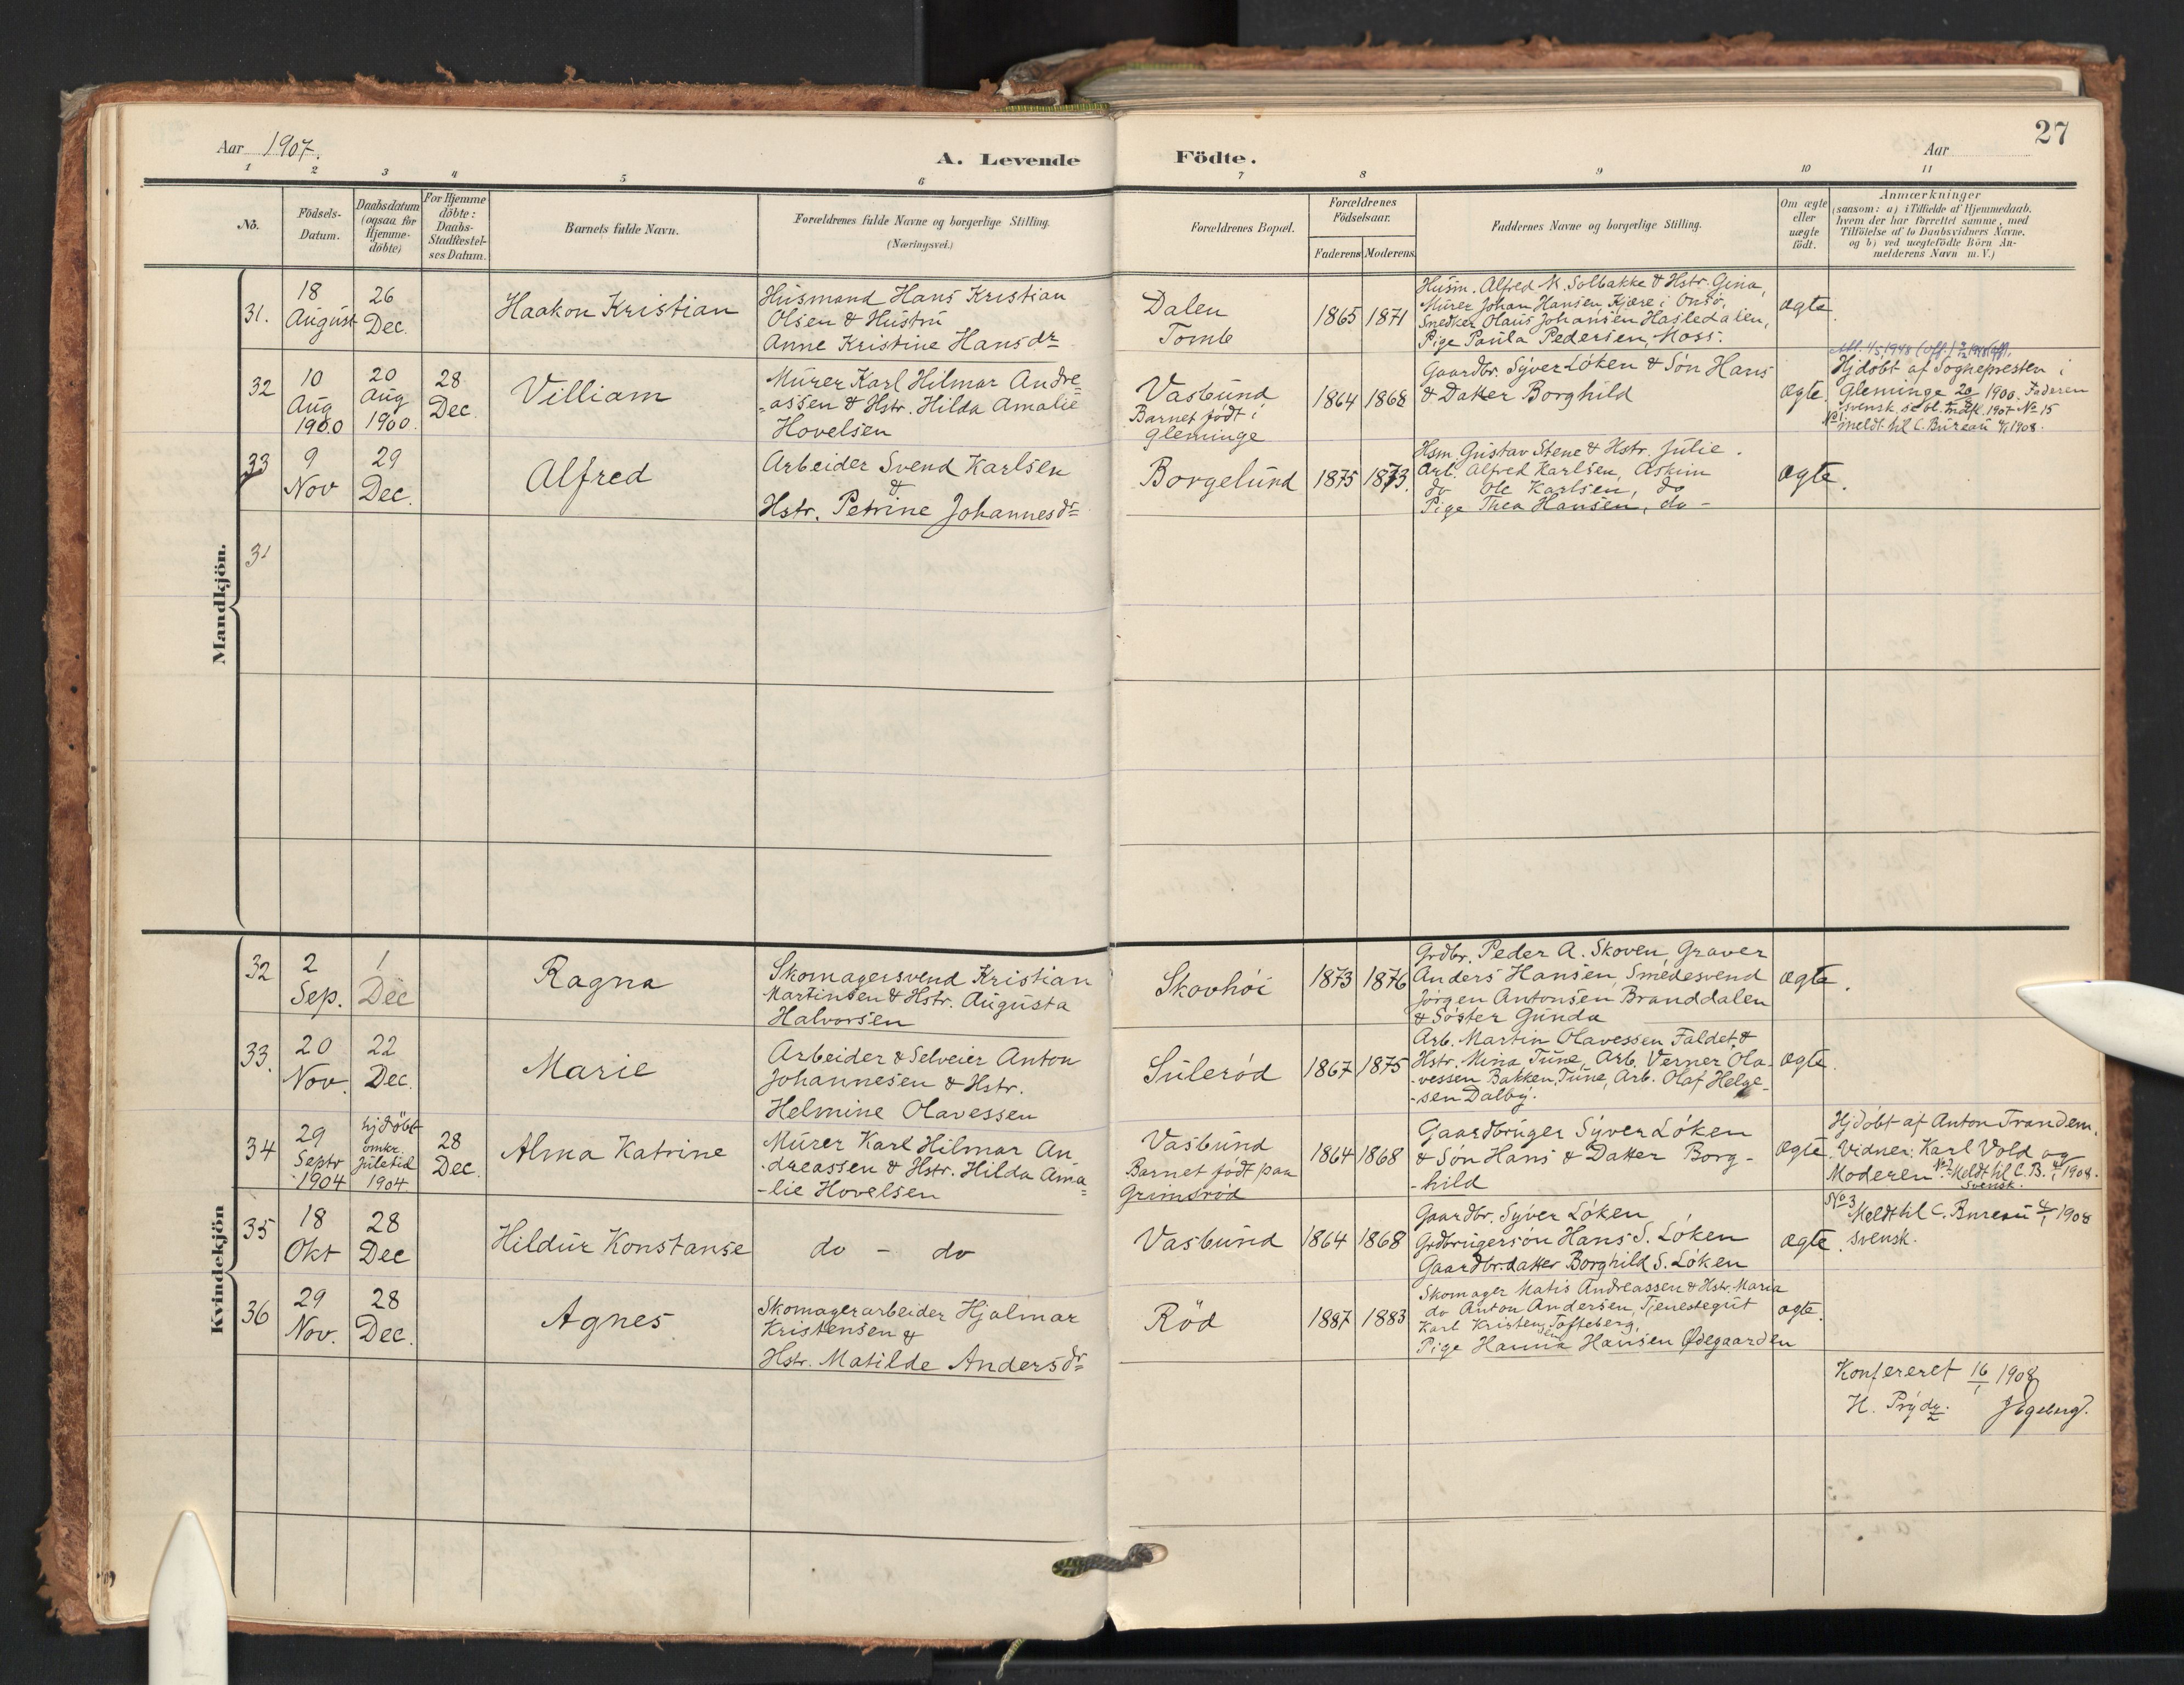 Aar 1907.
A. Levende Födte.
Aar
27
1 2 3 4 5 6 7 8 9 10 11
No.
Födsels-
Datum.
Daabsdatum
(ogsaa for
Hjemme-
döbte)
For Hjemme
döbte:
Daabs-
Stadfæstel-
ses Datum.
Barnets fulde Navn.
Forældrenes fulde Navne og borgerlige Stilling.
(Næringsvei.)
Forældrenes Bopæl.
Forældrenes
Födselsaar.
Faderens Moderens
Faddernes Navne og borgerlige Stilling.
Om ægte
eller
uægte
födt.
Anmærkninger
(saasom: a) i Tilfælde af Hjemmedaab,
hvem der har forrettet samme, med
Tilföielse af to Daabsvidners Navne,
og b) ved uægtefödte Börn An-
melderens Navn m. V.)
Mandkjön.
31.
18
August
26
Dec.
Haakon Kristian
Husmand Hans Kristian
Olsen & Hustru
Anne Kristine Hansdr
Dalen
Tomb
1865 1871
Husm. Alfred N. Solbakke & Hstr. Gina,
Murer Johan Hansen, Kjære i Onsö,
Snedker Olaus Johansen Hasledalen,
Pige Paula Pedersen, Moss.
ægte.
32
10
Aug
1900
20
Aug
1900.
28
Dec.
Villiam
Murer Karl Hilmar Andre-
-assen & Hstr. Hilda Amalie
Hovelsen
Vasbund
Barnet födt i
Gleminge
1864 1868
Gaardbr. Syver Löken & Sön Hans
& Datter Borghild
ægte.
Hjdöbt af Sognepresten i
Gleminge 20/8 1900. Faderen
svensk. 1907 No 15
No 1. meldt til C. Bureau 4/1 1908.
33
9
Nov
29
Dec.
Alfred
Arbeider Svend Karlsen
&
Hstr. Petrine Johannesdr
Borgelund
1875 1873.
Hsm. Gustav Stene & Hstr. Julie.
Arb. Alfred Karlsen, Askim
do Ole Karlsen, do
Pige Thea Hansen, do -
ægte.
31
Kvindekjön
32
2
Sep.
1
Dec
Ragna
Skomagersvend Kristian
Martinsen & Hstr. Augusta
Halvorsen
Skovhöi
1873 1876
Grdbr. Peder A. Skoven, Graver
Anders Hansen, Smedesvend
Jörgen Antonsen Branddalen
& Söster Gunda
ægte.
33.
20
Nov.
22
Dec.
Marie
Arbeider & Selveier Anton
Johannesen & Hstr.
Helmine Olavessen
Suleröd
1867 1875
Arb. Martin Olavessen Faldet &
Hstr. Mina Tune, Arb. Verner Ola-
-vessen Bakken, Tune, Arb. Olaf Helge-
-sen Dalby.
ægte.
34
29
Septr
1904
hjdöbt
omkr.
Juletid
1904
28
Dec.
Alma Katrine
Murer Karl Hilmar An
-dreassen & Hstr. Hilda Ama-
-lie Hovelsen
Vasbund
Barnet födt paa
Grimsröd
1864 1868
Gaardbruger Syver Löken
& Sön Hans & Datter Borg-
-hild
ægte.
Hjdöbt af Anton Trandem.
Vidner: Karl Vold og
Moderen. No 2 Meldt til C. B. 4/1 1908.
svensk.
35
18
Okt
28
Dec
Hildur Konstanse
do - do
Vasbund
1864 1868
Gaardbr. Syver Löken
Grdbrugersön Hans S. Löken
Gaardbr.datter Borghild S. Löken
ægte.
No 3
Meldt til C. Bureau 4/1 1908
svensk.
36
29
Nov.
28
Dec.
Agnes
Skomagerarbeider Hjalmar
Kristensen &
Hstr. Matilde Andersdr
Röd
1887 1883
Skomager Matis Andreassen & Hstr. Maria
do Anton Andersen, Tjenestegut
Karl Kristensen Tofteberg,
Pige Hanna Hansen Ödegaarden
ægte.
Konfereret 16/1 1908
H. Prydz.